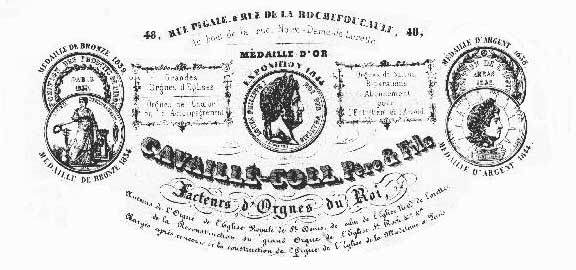 48, RUE PIGALE, & RUE DE LA ROCHEFOUCAULT, 40,
Au bout de la rue Notre-Dame de Lorette
MÉDAILLE DE BRONZE 1839
PARIS
MÉDAILLE DE BRONZE 1834
Grandes
Orgues d'Eglises
Orgues de Chœur
ou d'Accompagnement
MÉDAILLE D'OR
EXPOSITION 1844
Orgues de Salon
Réparations
Abonnement
pour
l'Entretien & l'Accord
MÉDAILLE D'ARGENT
ARRAS
MÉDAILLE D'ARGENT
CAVAILLÉ-COLL, Père & Fils
Facteurs d'Orgues du Roi,
Auteurs de l'Orgue de l'Eglise Royale de St Denis, de celui de l'Eglise N.D. de Lorette
de la Reconstruction du grand Orgue de l'Eglise St Roch
Chargés après concours de la construction de l'Orgue de l'Eglise de la Madeleine à Paris